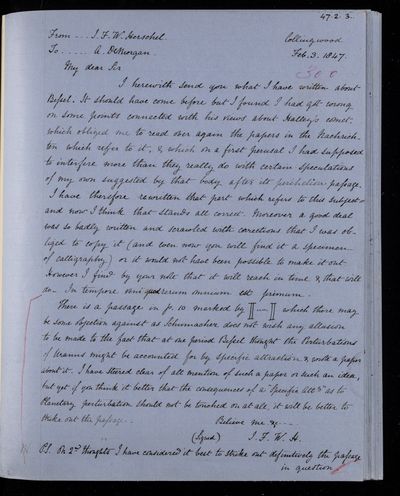 47.2.3.
From --- J. F. W. Herschel
Collingwood
To ------ A. DeMorgan
Feb. 3. 1847.
300
My dear Sir
I herewith send you what I have written about
Bessel. It should have come before but I found I had got wrong
on some points connected with his views about Halley's comet:
which obliged me to read over again the papers in the Nachrich-
ten which refer to it, & which on a first perusal I had supposed
to interfere more than they really do with certain speculations
of my own suggested by that body after its perihelion passage.
I have therefore rewritten that part which refers to this subject -
and now I think that stands all correct. Moreover a good deal
was so badly written and scrawled with corrections that I was ob-
liged to copy it (and even now you will find it a specimen
of calligraphy) or it would not have been possible to make it out
However I find by your note that it will reach in time & that will
do - In tempore omnium rerum est primum.
There is a passage in p. 10 marked by [----] which there may
be some objection against as Schumacher does not wish any allusion
to be made to the fact that at one period Bessel thought the Perturbations
of Uranus might be accounted for by specific attraction & wrote a paper
about it. I have steered clear of all mention of such a paper or such an idea,
but yet if you think it better that the consequences of a "Specific attn" as to
Planetary perturbation should not be touched on at all, it will be better to
strike out the passage. -
Believe me &c ---
(Signed) J. F. W. H.
P.S. On 2nd thoughts I have considered it best to strike out definitively the passage
in question